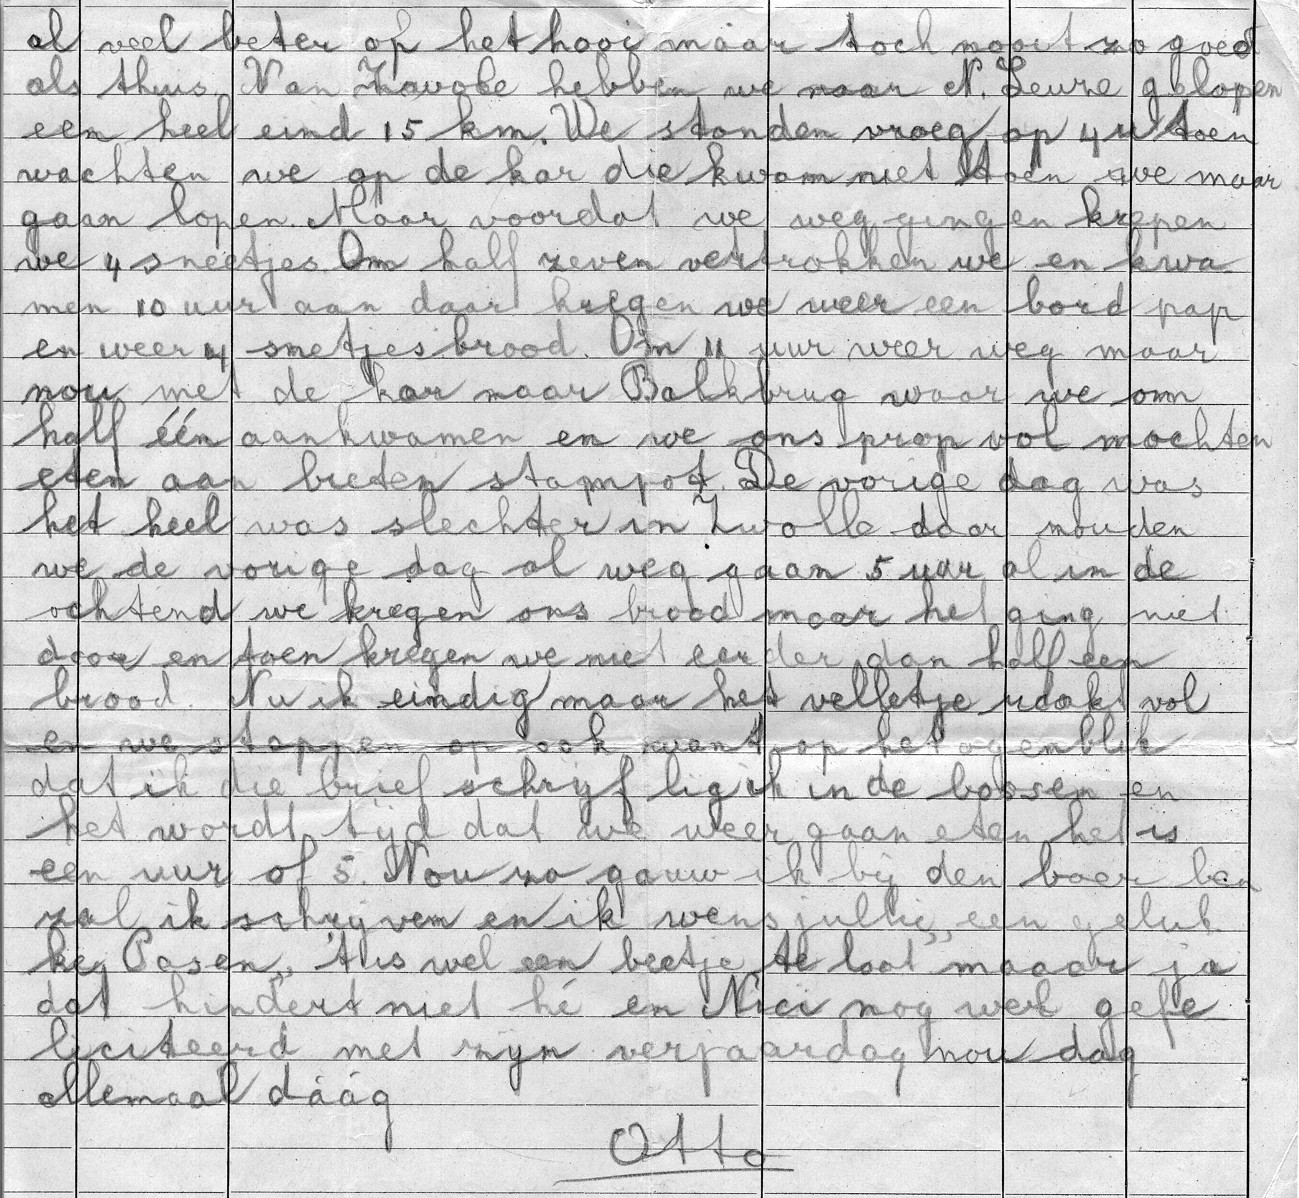 al veel beter op het hooi maar toch nooit zo goed
als thuis. Van Zwolle hebben we naar N. Leuze gelopen
een heel eind 15 km. We stonden vroeg op 4 u toen
wachten we op de kar die kwam niet toen we maar
gaan lopen. Maar voordat we weg gingen kregen
we 4 sneetjes. Om half zeven vertrokken we en kwa
men 10 uur aan daar kregen we weer een bord pap
en weer 4 sneetjes brood. Om 11 uur weer weg maar
nou met de kar naar Balkbrug waar we om
half één aankwamen en we ons prop vol mochten
eten aan bieten stampot. De vorige dag was
het heel was slechter in Zwolle daar mouden
we de vorige dag al weg gaan 5 uur al in de
ochtend we kregen ons brood maar het ging niet
door en toen kregen we niet eerder dan half een
brood. Nu ik eindig maar het velletje raakt vol
en we stappen op ook want op het ogenblik
dat ik die brief schrijf lig ik in de bossen en
het wordt tijd dat we weer gaan eten het is
een uur of 5. Nou zo gauw ik bij den boer ben
zal ik schrijven en ik wens jullie een geluk
kig Pasen,, 't is wel een beetje te laat" maaar ja
dat hindert niet hé en Nici nog wel gefe
liciteerd met zijn verjaardag nou dag
allemaal dáág
Otto